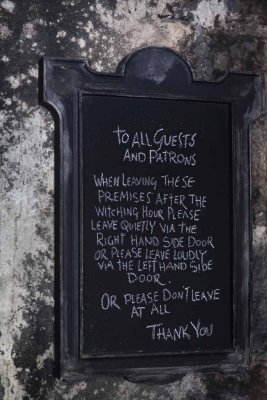 TO ALL GUESTS
AND PATRONS
WHEN LEAVING THESE
PREMISES AFTER THE
WITCHING HOUR PLEASE
LEAVE QUIETLY VIA THE
RIGHT HAND SIDE DOOR
OR PLEASE LEAVE LOUDLY
VIA THE LEFT HAND SIDE
DOOR.
OR PLEASE DON'T LEAVE
AT ALL
THANK YOU